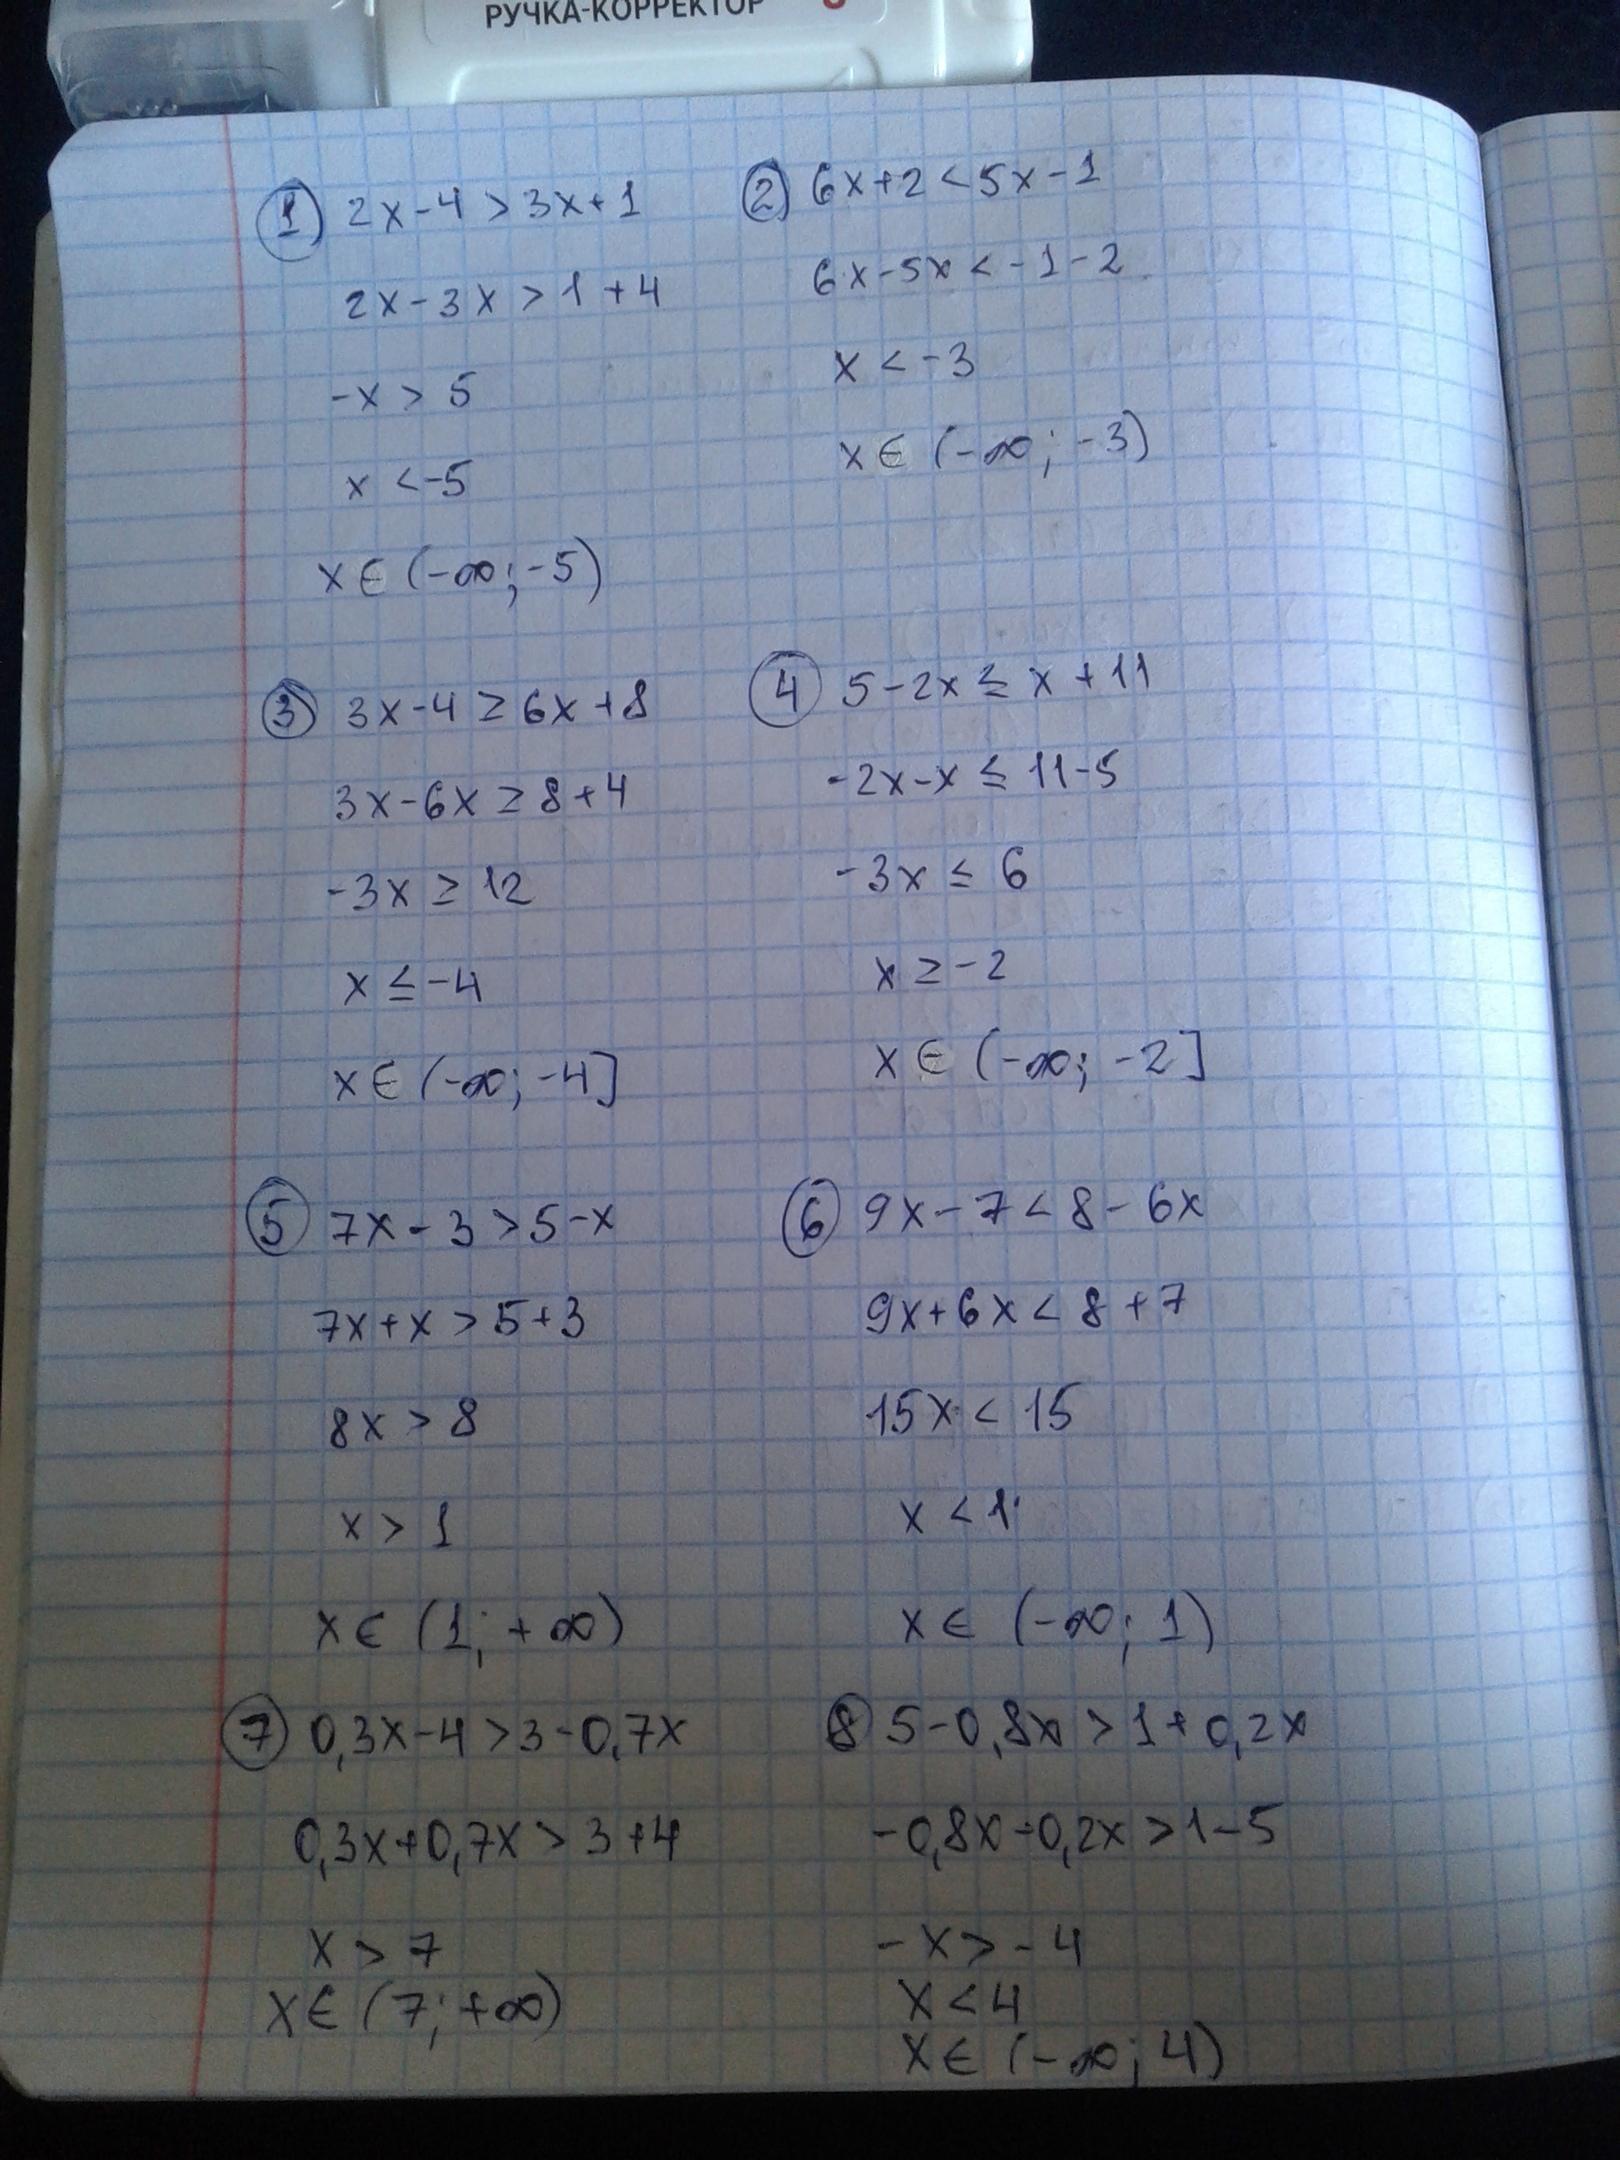 РУЧКА-КОРРЕКТОР
1) 2x-4>3x+1
2x-3x>1+4
-x>5
x<-5
x∈(-∞;-5)
2) 6x+2<5x-1
6x-5x<-1-2
x<-3
x∈(-∞;-3)
3) 3x-4≥6x+8
3x-6x≥8+4
-3x≥12
x≤-4
x∈(-∞;-4]
4) 5-2x≤x+11
-2x-x≤11-5
-3x≤6
x≥-2
x∈(-∞;-2]
5) 7x-3>5-x
7x+x>5+3
8x>8
x>1
x∈(1;+∞)
6) 9x-7<8-6x
9x+6x<8+7
15x<15
x<1
x∈(-∞;1)
7) 0,3x-4>3-0,7x
0,3x+0,7x>3+4
x>7
x∈(7;+∞)
8) 5-0,8x>1+0,2x
-0,8x-0,2x>1-5
-x>-4
x<4
x∈(-∞;4)